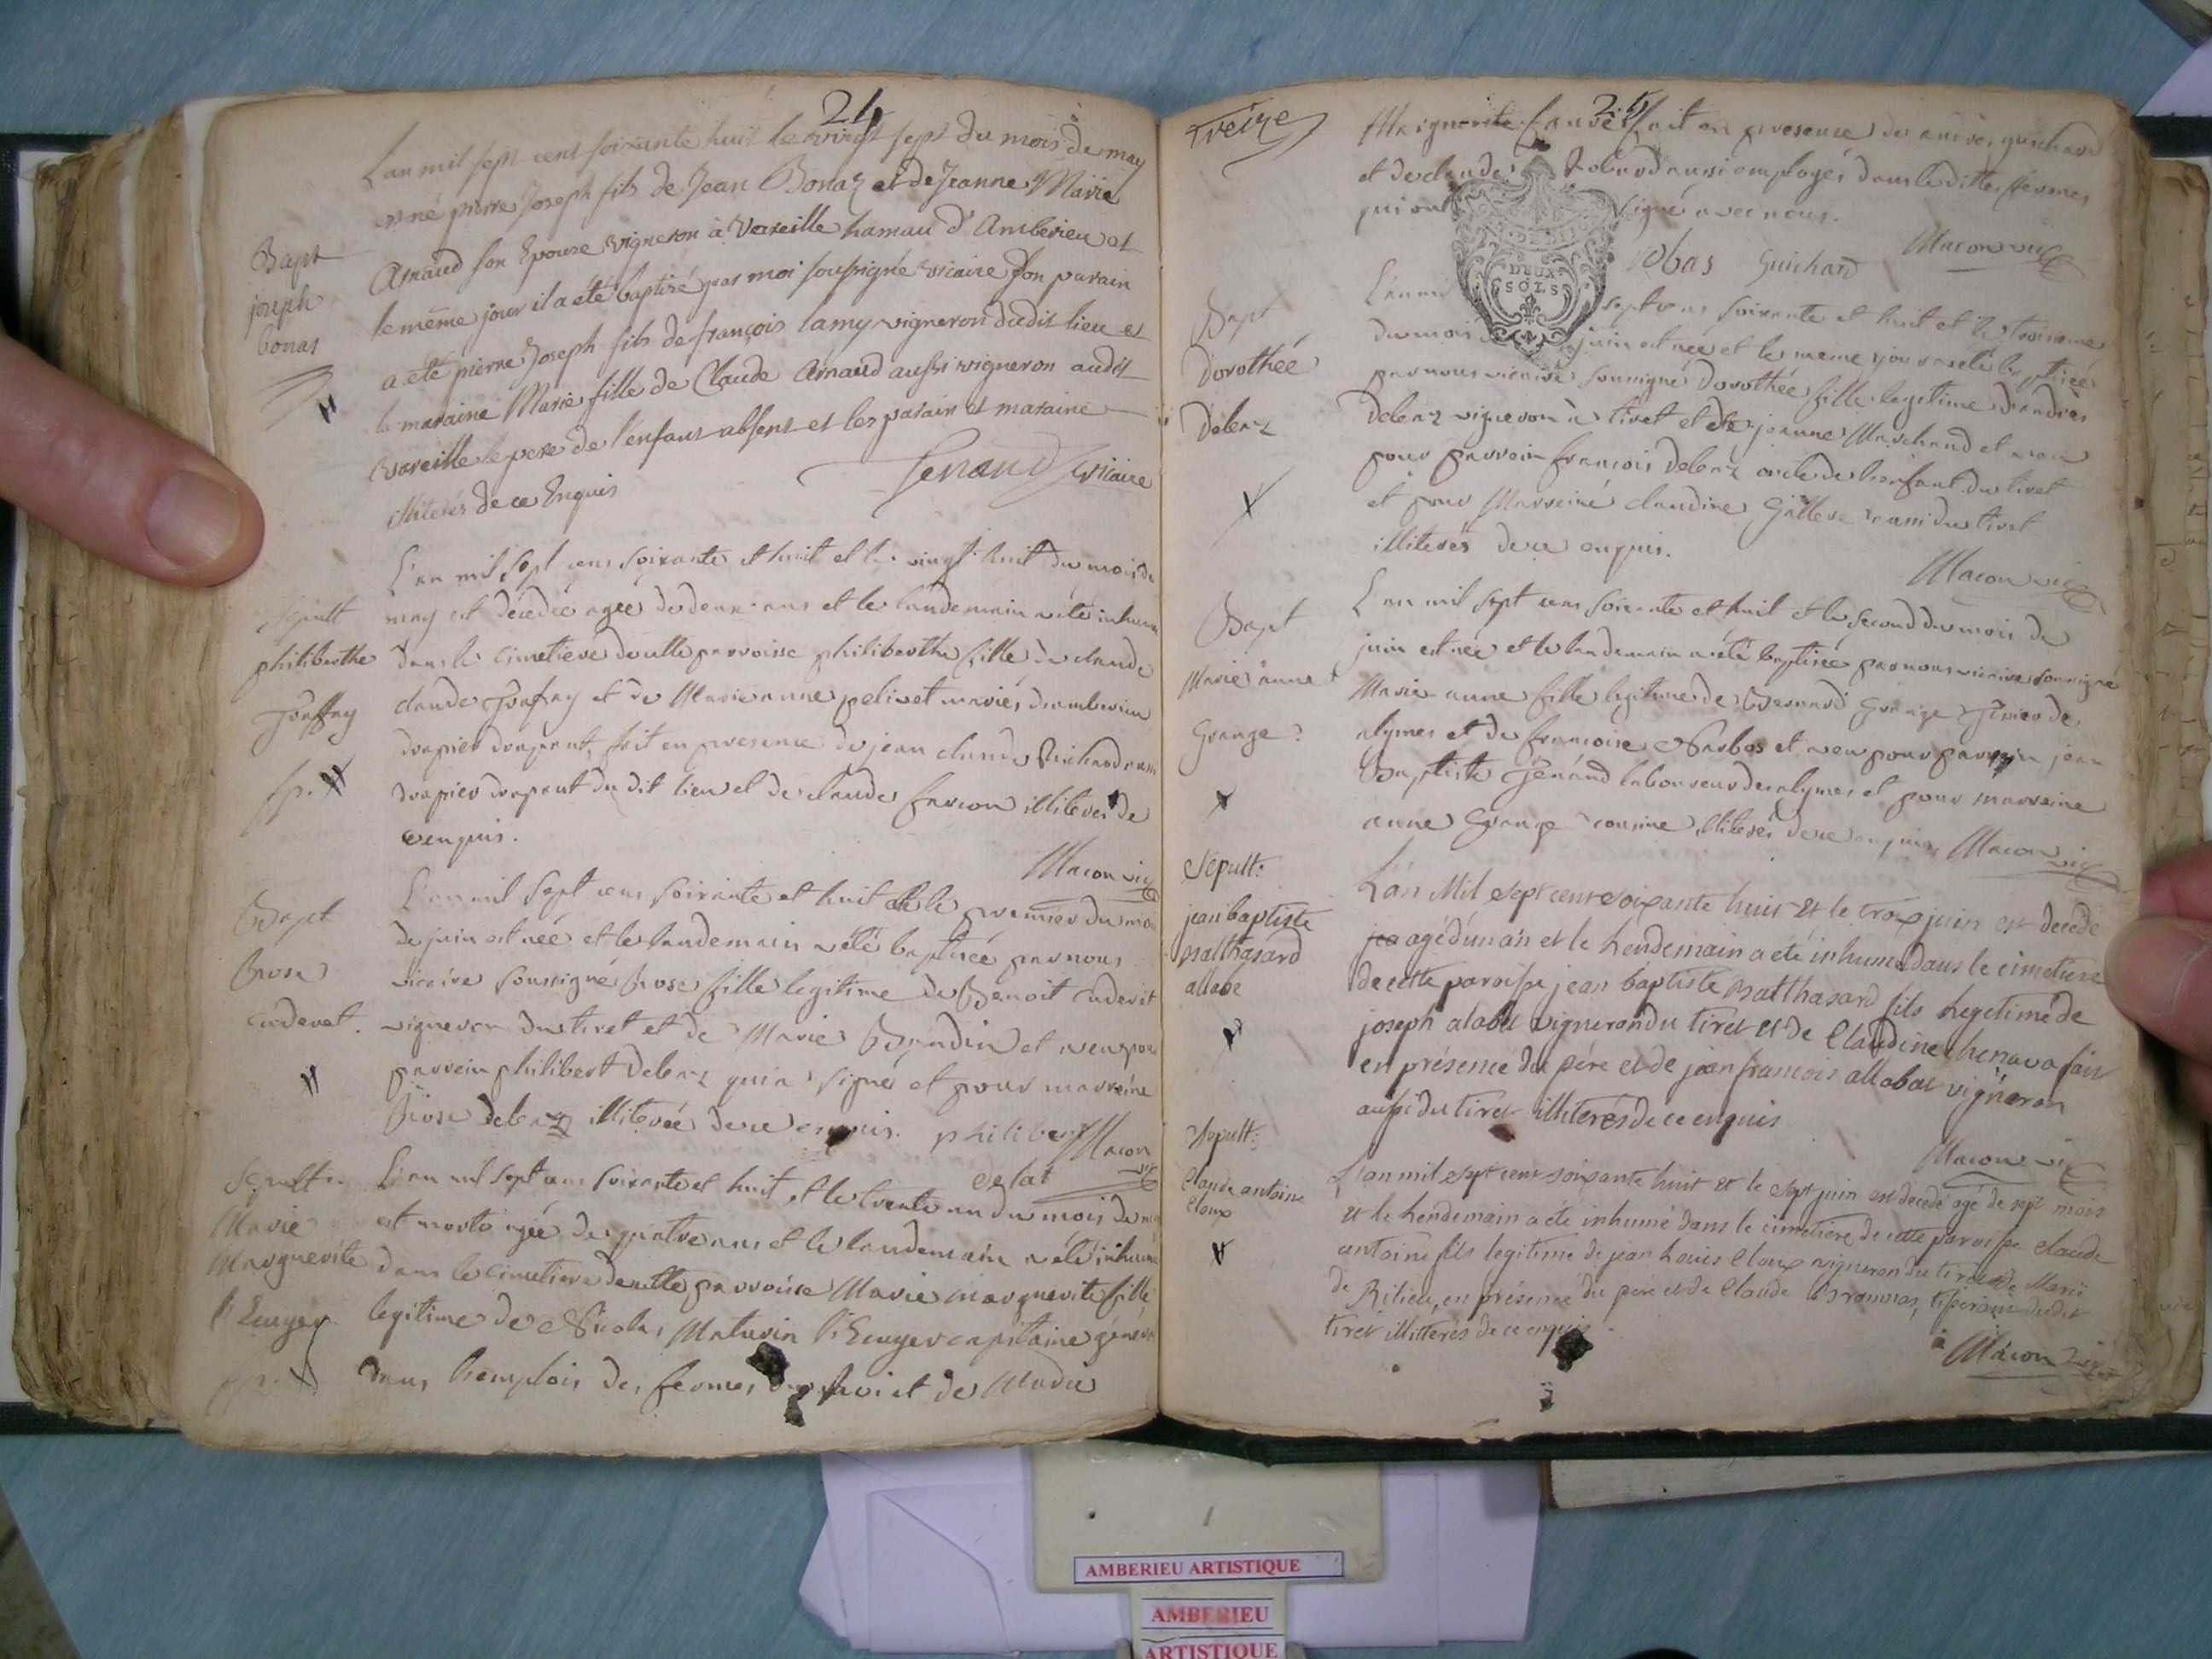 24
L'an mil sept cent soixante huit le vingt sept du mois de may
est né pierre Joseph fils de Jean Bonaz et de Jeanne Marie
Arnaud son Epouse vigneron à Vareille hamau d'Amberieu et
le même jour il a été baptisé par moi soussigné vicaire son parain
a eté pierre Joseph fils de françois lamy vigneron dudit lieu et
la maraine Marie fille de Claude Arnaud aussi vigneron audit
vareille le pere de l'enfant absent et les parain et maraine
illiterés de ce Enquis
vicaire
Bapt
joseph
bonas
L'an mil sept cens soixante et huit et le vingt huit du mois de
may est décedée agée de deux ans et le landemain a été inhumée
dans le cimetiere de cette parroisse philiberthe fille de claude
claude et de Marie anne pelivet mariés d'amberieu
drapier drapant, fait en presence de jean claude
drapier drapant du dit lieu et de claude illiterés de
ce enquis.
Macon vic
Sepult
philiberthe
L'an mil sept cens soixante et huit et le premier du mois
de juin est née et le landemain a été baptisée par nous
vicaire soussigné Rose fille legitime de Benoit
vigneron du tiret et de Marie et a eu pour
parrein philibert debenz qui a signé et pour marreine
Rose debenz illiterée de ce enquis. philibert Macon
delat
Bapt
Rose
Sepult.
Marie
Marguerite
l'Ecuyer
L'an mil sept cens soixante et huit et le trente un du mois de may
est morte agée de quatre ans et le landemain a été inhumée
dans le cimetiere de cette parroisse Marie marguerite fille
legitime de Nicolas Maturin l'Ecuyer capitaine général
dans l'emplois des fermes du et de Marie
treize
25
Marguerite fait en presence de guichard
et de claude aussi employés dans le dittes fermes
qui ont signé avec nous.
jobas Guichard Macon vic
DEUX
SOLS
L'an mil sept cens soixante et huit et le troisieme
du mois de juin est née et le meme jour a été baptisée
par nous vicaire soussigné dorothée fille legitime d'andré
debenz vigneron à tiret et de jeanne Marchand et a eu
pour parrein françois debenz oncle de l'enfant du tiret
et pour Marreine claudine aussi du tiret
illiterés de ce enquis.
Macon vic
Bapt
Dorothée
Debenz
L'an mil sept cens soixante et huit et le second du mois de
juin est née et le landemain a été baptisée par nous vicaire soussigné
Marie anne fille legitime de Bernard Grange des
alymes et de françoise et a eu pour parrein jean
Baptiste Génând laboureur des alymes et pour marreine
anne Grange cousine illiterés de ce enquis Macon vic
Bapt
Marie anne
Grange
Sepult:
jean baptiste
balthasard
allabe
L'an Mil sept cent soixante huit et le trois juin est decedé
jea agé d'un an et le lendemain a été inhumé dans le cimetiere
de cette paroisse jean baptiste balthasard fils legitime de
joseph alabe vigneron du tiret et de Claudine chenava fait
en présence du pére et de jean francois allabat vigneron
aussi du tiret illiterés de ce enquis
Macon vic
Sepult:
Claude antoine
Cloux
L'an mil sept cent soixante huit et le sept juin est decedé agé de sept mois
et le lendemain a été inhumé dans le cimetiere de cette paroisse claude
antoine fils legitime de jean Louis Cloux vigneron du tiret et de Marie
de Rilieu, en présence du pere et de Claude tisseran dudit
tiret illitterés de ce enquis.
Macon vic
AMBERIEU ARTISTIQUE
AMBERIEU
ARTISTIQUE